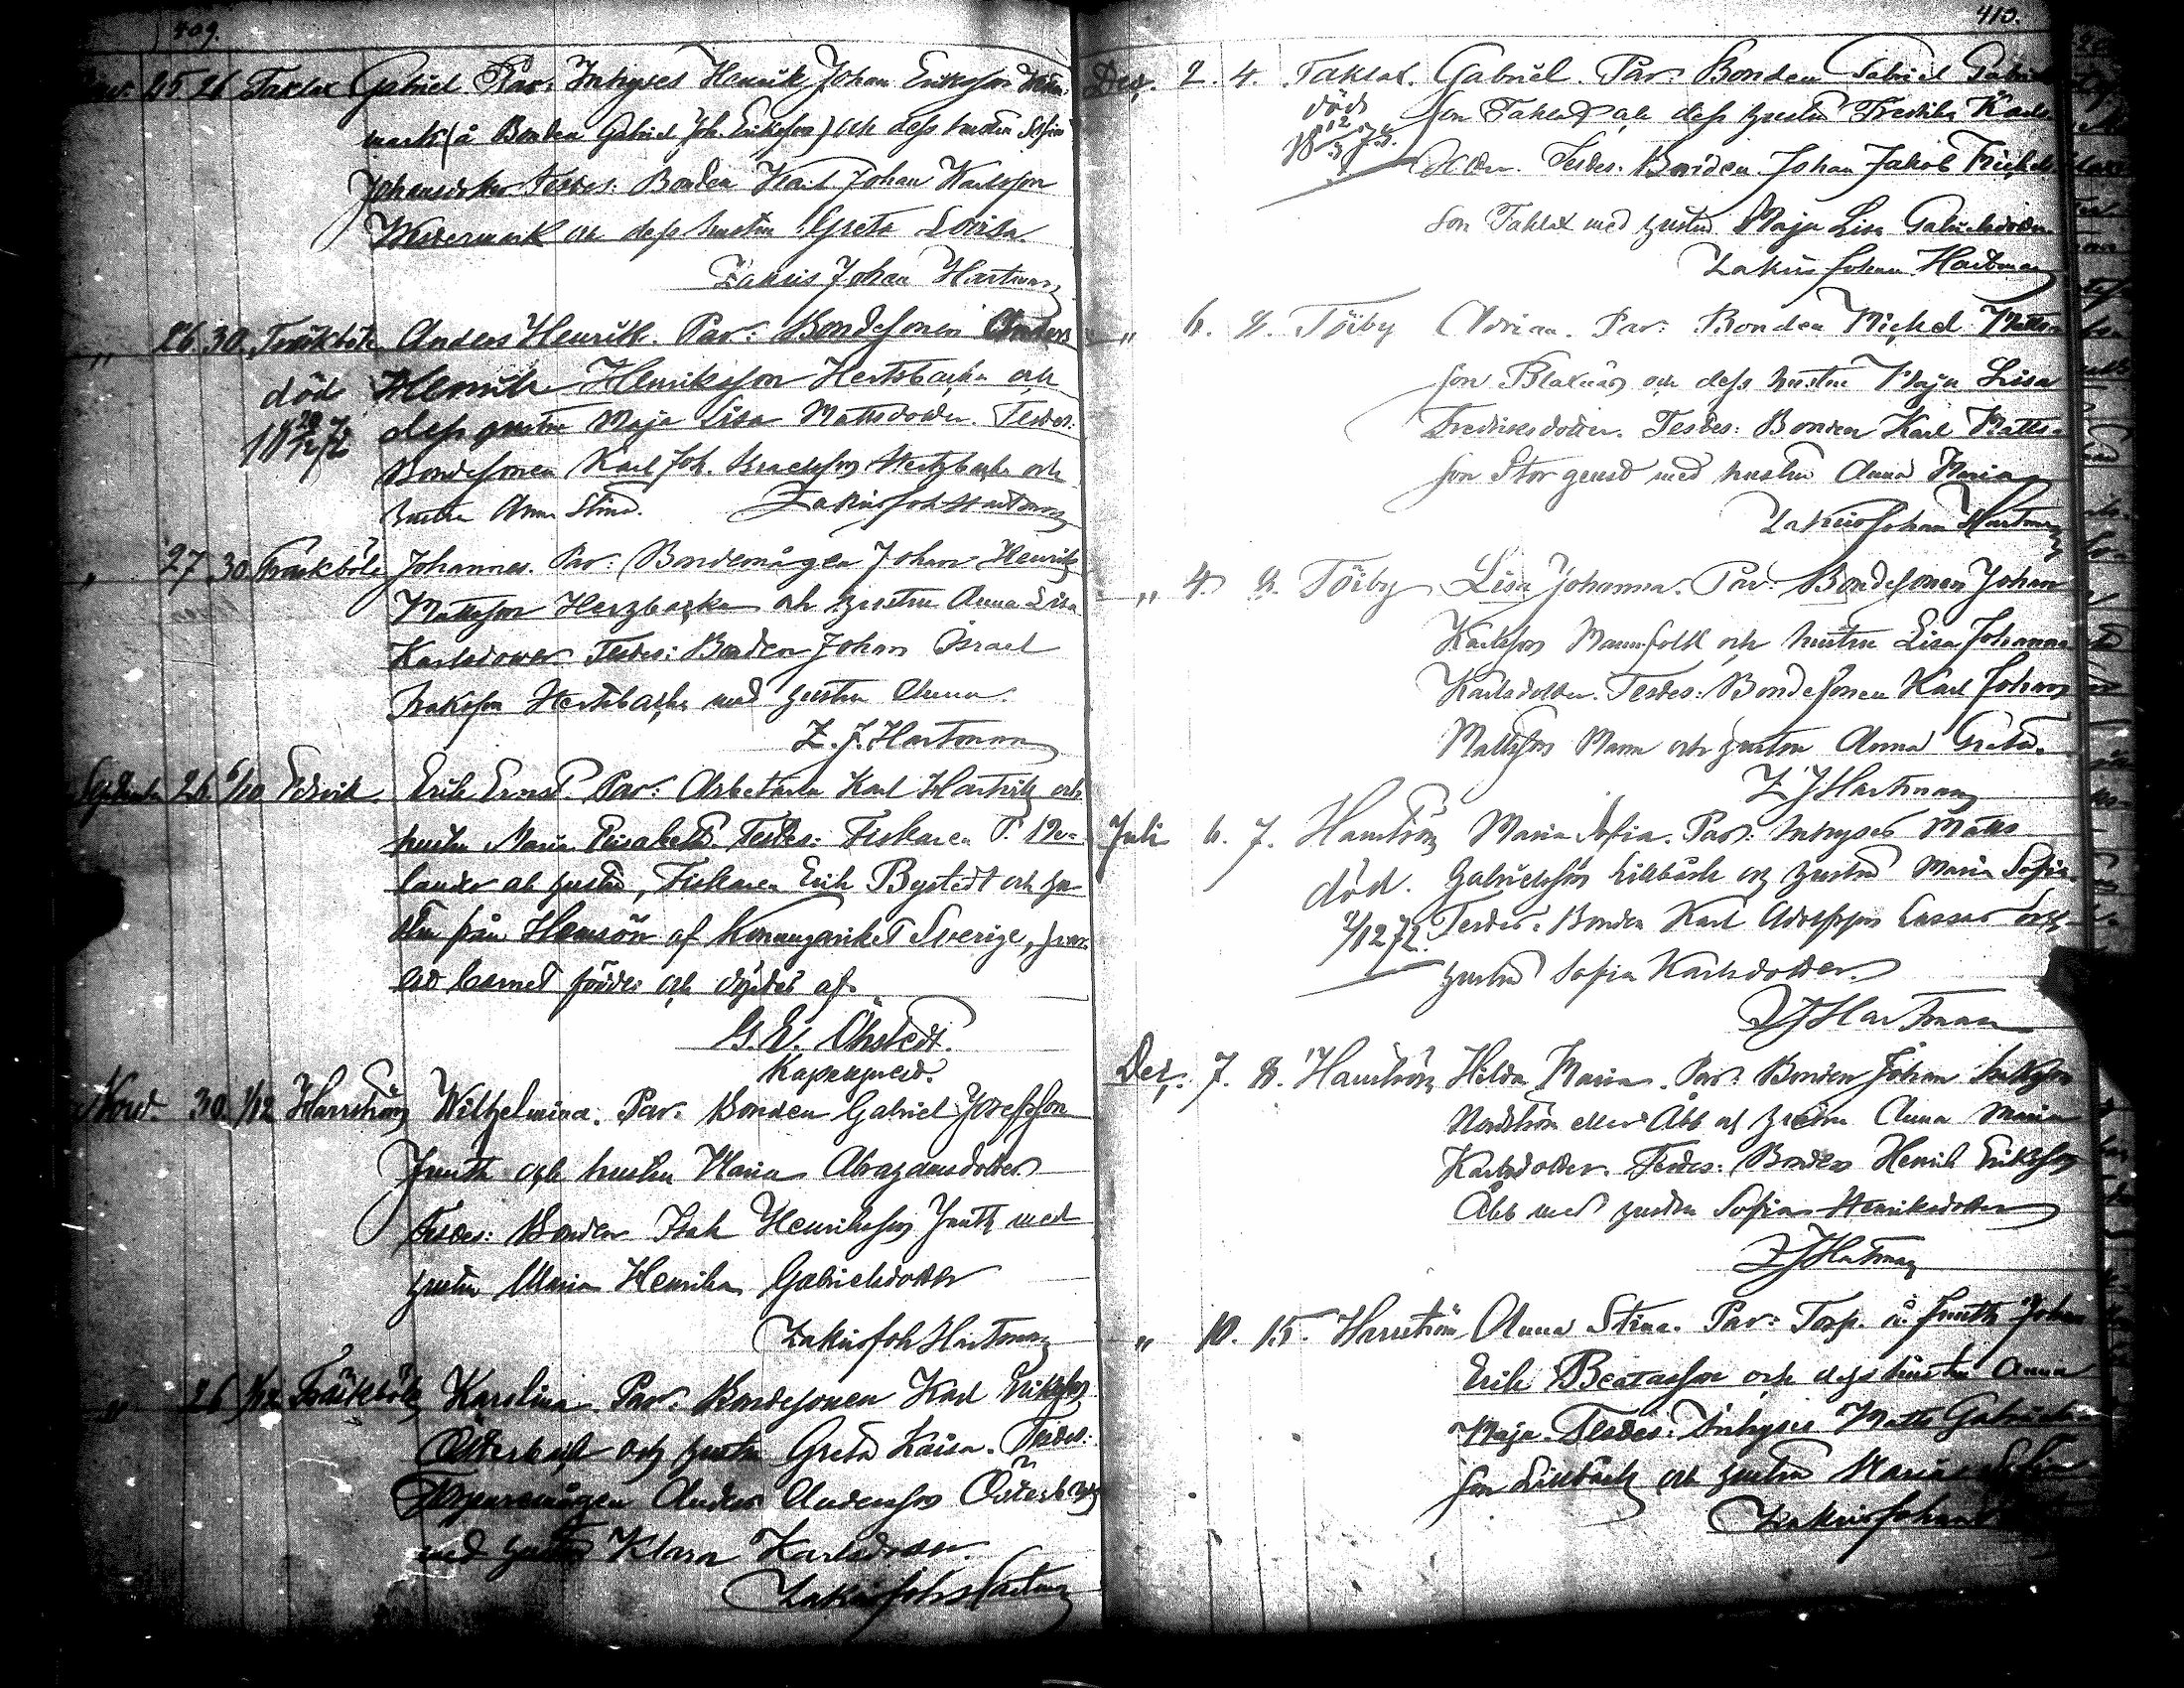 409.
25 26 Taklax Gabriel Par: Inhyses Henrik Johan Eriksson
mark (å Bonden Gabriel Joh. Eriksson) och dess hustru Sofia
Johansdotter Testes: Bonden Karl Johan Karlsson
Westermark och dess hustru Greta Lovisa.
Zakris Johan Hartman
" 26. 30. Träskböle Anders Henrik. Par: Bondesonen Anders
död Henrik Henriksson Hertsbacka och
dess hustru Maja Lisa Mattsdotter. Testes:
Bondesonen Karl Joh. Hertzbacka och
hustru Anna Stina. Zakris Joh Hartman
" 27. 30. Träskböle Johannes. Par: Bondemågen Johan Henrik
Mattsson Herzbacka och hustru Anna Lisa
Karlsdotter Testes: Bonden Johan Israel
Isaksson Hertsbacka med hustru Anna.
Z. J. Hartman
September 26 6/10 Edsvik. Erik Ernst. Par: Arbetaren Karl och
hustru Maria Elisabeth. Testes: Fiskaren
lander och hustru, Fiskaren Erik Bystedt och hu-
stru från Hemsön af Konungariket Sverige, hvar-
est barnet föddes och döptes af
G. E. Öhstedt.
Kapellpred.
Nov. 30. 1/12 Harrström Wilhelmina. Par: Bonden Gabriel Josefsson
Juuth och hustru Maria Abrahamsdotter
Testes: Bonden Isak Henriksson Juuth med
hustru Maria Henrika Gabrielsdotter
Zakris Joh Hartman
" 26 1/12 Träskböle Karolina. Par: Bondesonen Karl Eriksson
Österback och hustru Greta Kaisa. Testes:
Torparemågen Anders Andersson Österback
med hustru Klara Karlsdotter.
Zakris Joh Hartman
410.
Dec. 2. 4. Taklax. Gabriel. Par: Bonden Gabriel Gabriel
död son Taklax och dess hustru Fredrika Karls-
dotter. Testes: Bonden Johan Jakob
son Taklax med hustru Maja Lisa Gabrielsdotter.
Zakris Johan Hartman
" 6. 8. Töjby Adrian. Par: Bonden Michel Matts-
son Blaxnäs och dess hustru Maja Lisa
Fredriksdotter. Testes: Bonden Karl Matts-
son Storgeust med hustru Anna Maria
Zakris Johan Hartman
" 4. 8. Töjby Lisa Johanna. Par: Bondesonen Johan
Karlsson Mannfolk och hustru Lisa Johanna
Karlsdotter. Testes: Bondesonen Karl Johan
Mattsson Mann och hustru Anna Greta.
Z J Hartman
Juli 6. 7. Harrström Maria Sofia. Par: Inhyses Matts
död. Gabrielsson Lillbäck och hustru Maria Sofia.
2/12 72. Testes: Bonden Karl Adolfsson Lassas och
hustru Sofia Karlsdotter.
Z J Hartman
Dec. 7. 8. Harrström Hilda Maria. Par: Bonden Johan
Nordström eller Åbb och hustru Anna Maria
Karlsdotter. Testes: Bonden Henrik Eriksson
Åbb med hustru Sofia Henriksdotter
Z J Hartman
" 10. 15. Harrström Anna Stina. Par: Torp. å Juuth Johan
Erik Beatasson och dess hustru Anna
Maja. Testes: Inhyses Matts Gabriels-
son Lillbäck och hustru Maria Sofia
Zakris Johan